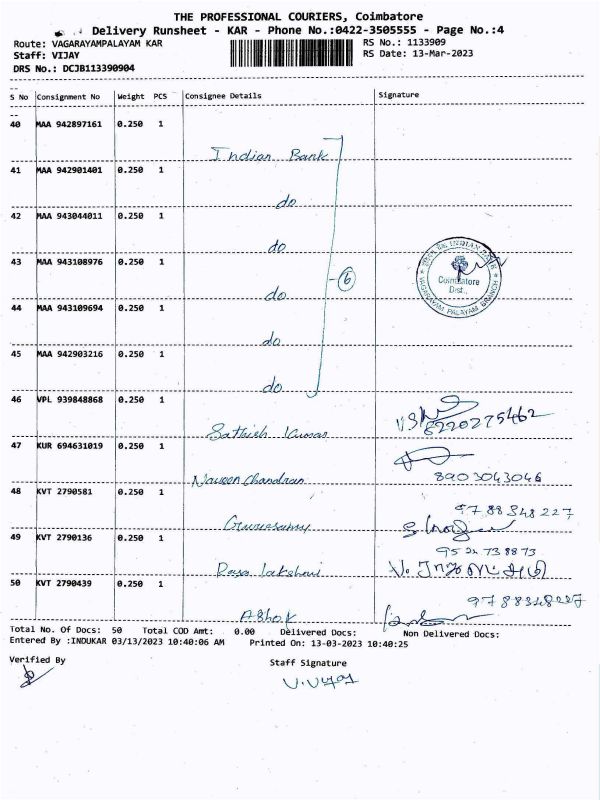 THE PROFESSIONAL COURIERS, Coimbatore
Delivery Runsheet - KAR - Phone No.:0422-3505555 - Page No.:4
Route: VAGARAYAMPALAYAM KAR RS No.: 1133909
Staff: VIJAY RS Date: 13-Mar-2023
DRS No.: DCJB113390904
S No Consignment No Weight PCS Consignee Details Signature
40 MAA 942897161 0.250 1
Indian Bank
41 MAA 942901401 0.250 1
do
42 MAA 943044011 0.250 1
do
43 MAA 943108976 0.250 1
do
44 MAA 943109694 0.250 1
do
45 MAA 942903216 0.250 1
do
6
INDIAN BANK
Coimbatore
Dist.,
VAGARAYAM PALAYAM BRANCH
46 VPL 939848868 0.250 1
Sathish Kumar 6220275462
47 KUR 694631019 0.250 1
Naveen Chandran 8903043046
48 KVT 2790581 0.250 1
9788348227
Guruсsamy
49 KVT 2790136 0.250 1
9522738873
Raja lakshmi V. ராஜலட்சுமி
50 KVT 2790439 0.250 1
9788348227
Ashok
Total No. Of Docs: 50 Total COD Amt: 0.00 Delivered Docs: Non Delivered Docs:
Entered By :INDUKAR 03/13/2023 10:40:06 AM Printed On: 13-03-2023 10:40:25
Verified By Staff Signature
V.Vijay